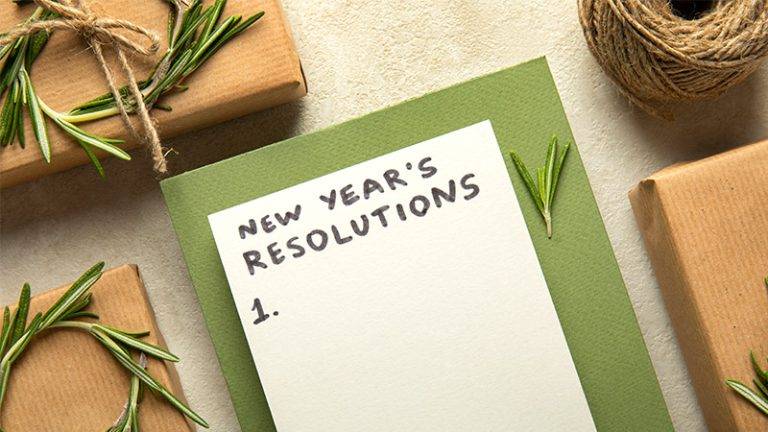 NEW YEAR'S
RESOLUTIONS
1.